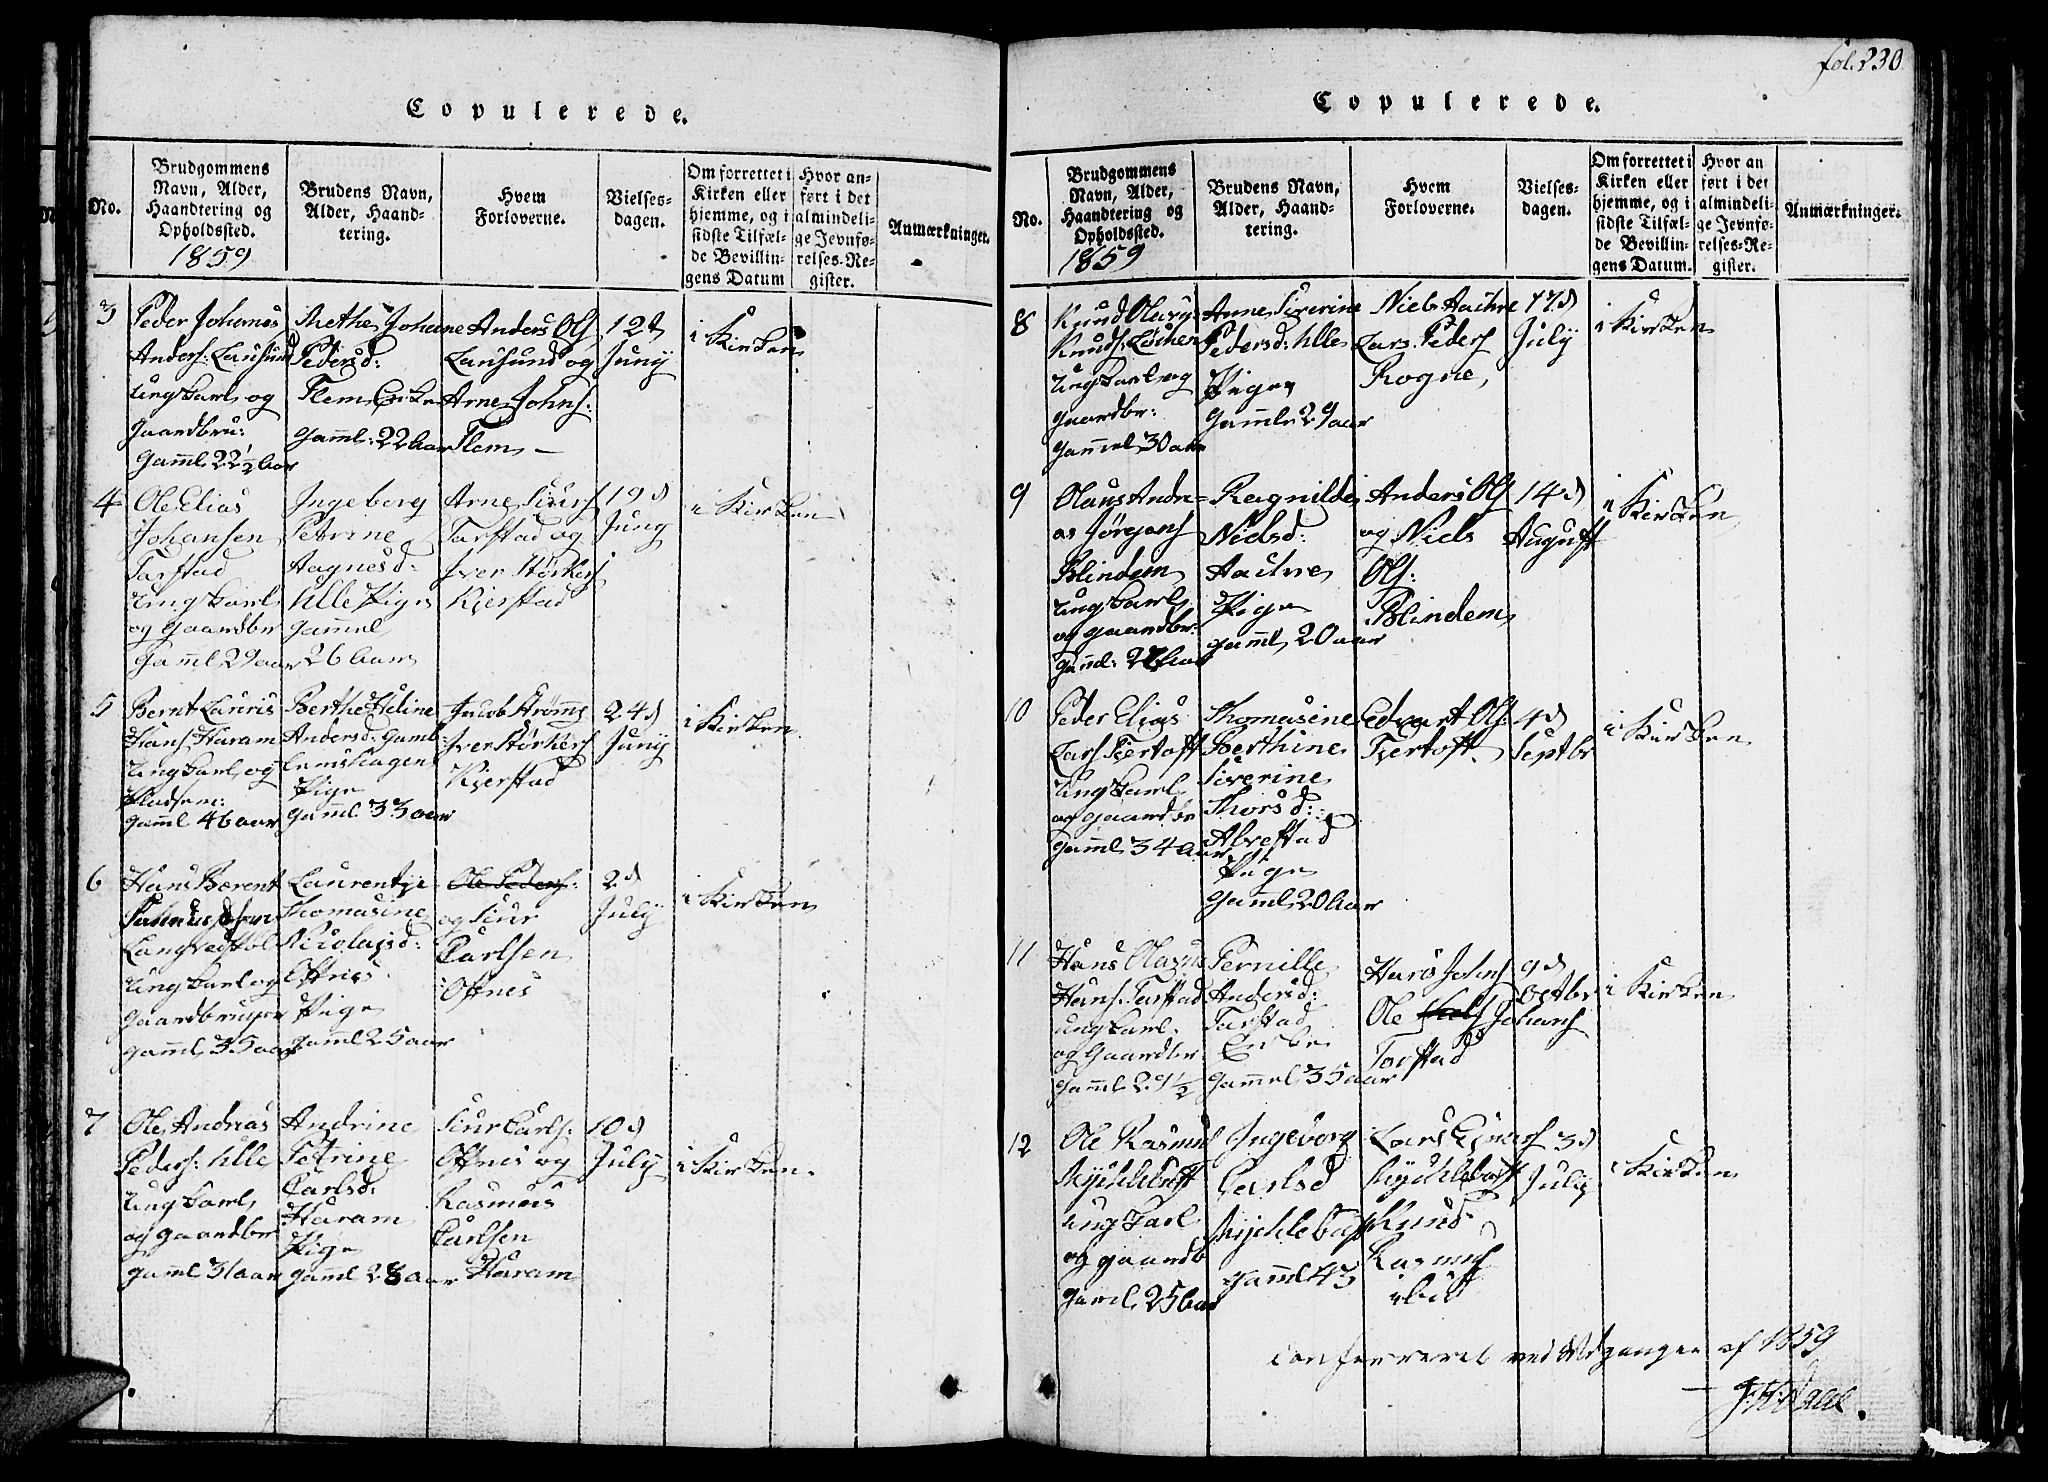 fol. 230
Copulerede.
No.
Brudgommens
Navn, Alder,
Haandtering og
Opholdssted.
1859
Brudens Navn,
Alder, Haand-
tering.
Hvem
Forloverne.
Vielses-
dagen.
Om forrettet i
Kirken eller
hjemme, og i
sidste Tilfæl-
de Bevillin-
gens Datum
Hvor an-
ført i det
almindeli-
ge Jevnfø-
relses-Re-
gister.
Anmærkninger.
3
Peder Johannes
Anders: Lausund
Ungkarl og
Gaardbru:
gaml 22½ Aar
Johanne
Pedersd:
Flem Enke
gaml: 22 Aar
Anders Ols
Lausund og
Arne Johns:
Flem
12d
Juny
i Kirken
4
Ole Elias
Johansen
Tarstad
Ungkarl
og gaardbr
gaml 29 aar
Ingeborg
Petrine
Aagnesd:
Ulle Pige
gammel
26 Aar
Arne Siurs
Tarstad og
Iver Størkers
Kjerstad
19d
Juny
i Kirken
5
Bernt Lauris
Hans Haram
Ungkarl og
gaml 46 aar
Berthe Heline
Andersd: gaml
Pige
gaml 33 aar
Jacob Strømme
Iver Størkers
Kjerstad
24d
Juny
i Kirken
6
Hans Berent
Ungkarl og
Gaardbruger
gaml 35 aar
Laurentze
Thomasine
Nicolaisd:
Ottnes
Pige
gaml 25 aar
Ole Peders:
og Siur
Carlsen
Ottnes
2d
July
i Kirken
7
Ole Andreas
Peders: Ulle
Ungkarl
og gaardbr
gaml 31 aar
Andrine
Petrine
Carlsd:
Haram
Pige
gaml 28 aar
Siur Carls:
Ottnes og
Rasmus
Carlsen
Haram
10d
July
i Kirken
Copulerede.
No.
Brudgommens
Navn, Alder,
Haandtering og
Opholdssted.
1859
Brudens Navn,
Alder, Haand-
tering.
Hvem
Forloverne.
Vielses-
dagen.
Om forrettet i
Kirken eller
hjemme, og i
sidste Tilfæl-
de Bevillin-
gens Datum.
Hvor an
ført i det
almindeli-
ge Jevnfø-
relses-Re-
gister.
Anmærkninger.
8
Knud Olaus
Knuds:
Ungkarl og
gaardbr:
gammel 30 aar
Anne Siverine
Pedersd: Ulle
Pige
gaml 29 aar
Niels Aachre
Lars Peders
Rogne
17d
July
i Kirken
9
Olaus Andre-
as Jørgens
Blindem
Ungkarl
og gaardbr:
gaml: 27 Aar
Ragnilde
Nielsd:
Aachre
Pige
gaml 20 aar
Anders Ols
og Niels
Ols:
Blindem
14d
August
i Kirken
10
Peder Elias
Lars Fiertoft
Ungkarl
og gaardbr
gaml 34 aar
Thomasine
Berthine
Siverine
Thorsd:
Alvestad
Pige
gaml 20 Aar
Edvart Ols:
Fiertoft
4d
Septbr
i Kirken
11
Hans Olaus
Hans: Tarstad
Ungkarl
og Gaardbr
gaml 29½
Pernille
Andersd:
Tarstad
Enke
gammel 35 aar
Johans
Ole Johans
Tarstad
9d
Octbr
i Kirken
12
Ole Rasmus
Myklebust
Ungkarl
og gaardb
gaml 25 Aar
Ingeborg
Carlsd
Myklebust
gaml 43
Lars Ejnars
Myklebust
Knud
Rasmus
ibid
3d
July
i Kirken
Confereret ved Udgangen af 1859